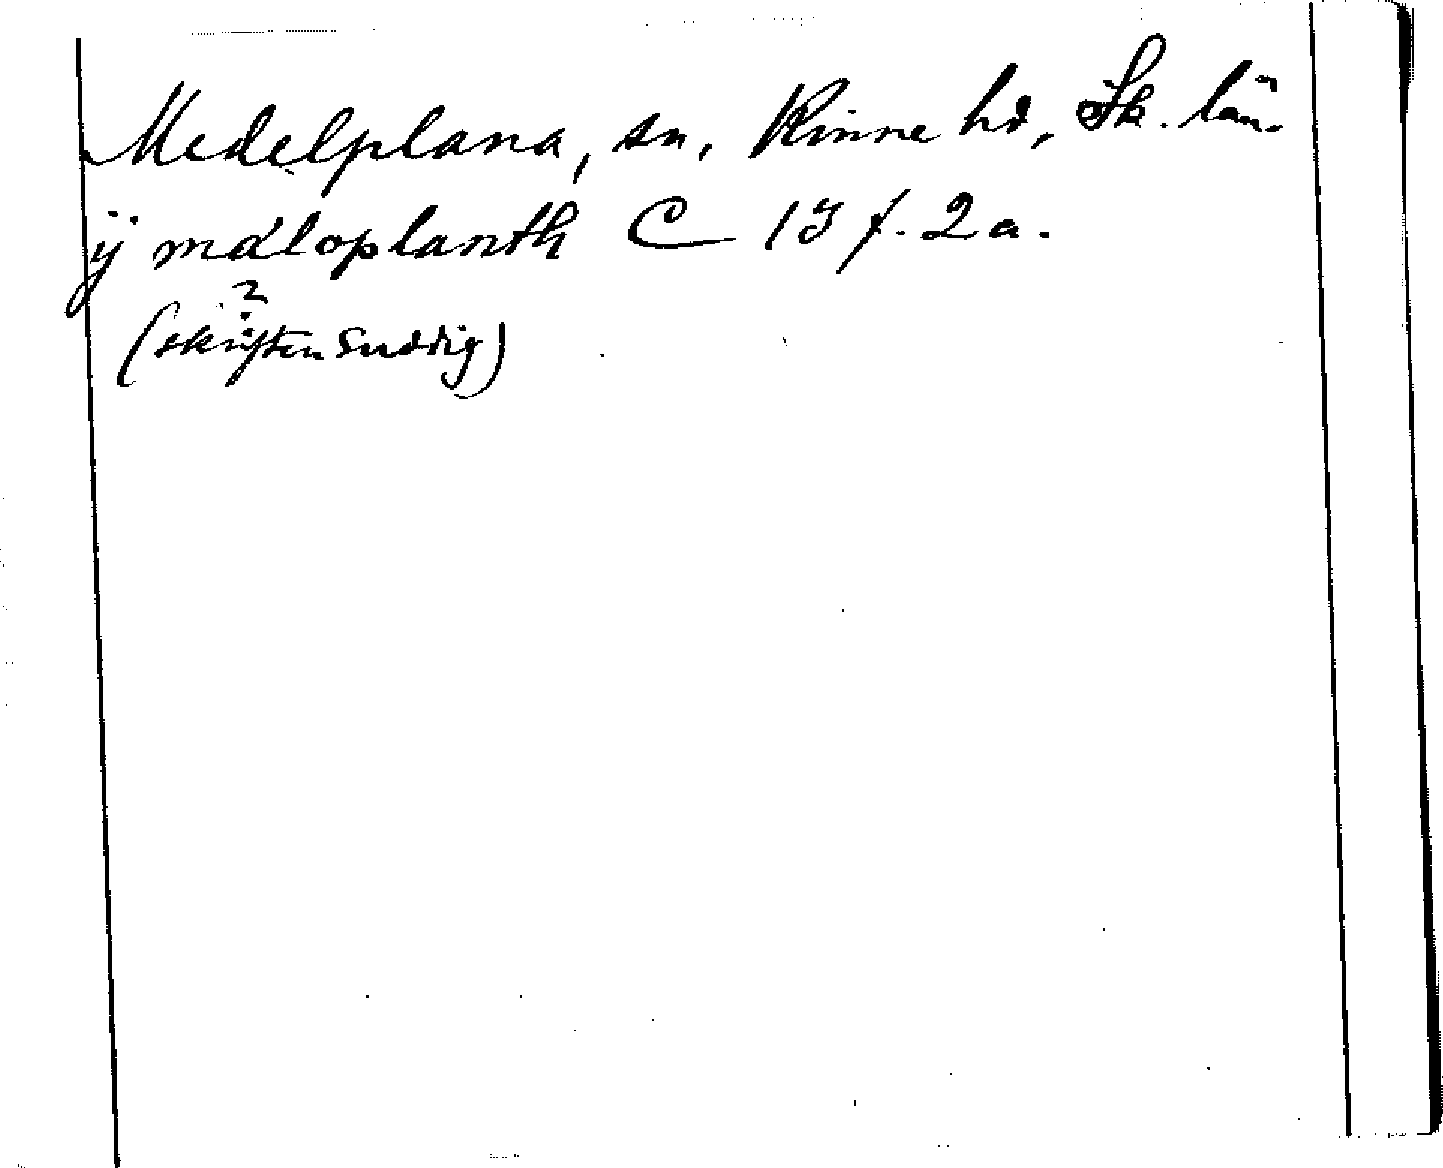 Medelplana, sn, Kinne hd, Sk. län.
ÿ mdloplanth C 13 f. 2a.
?
(skriften suddig)